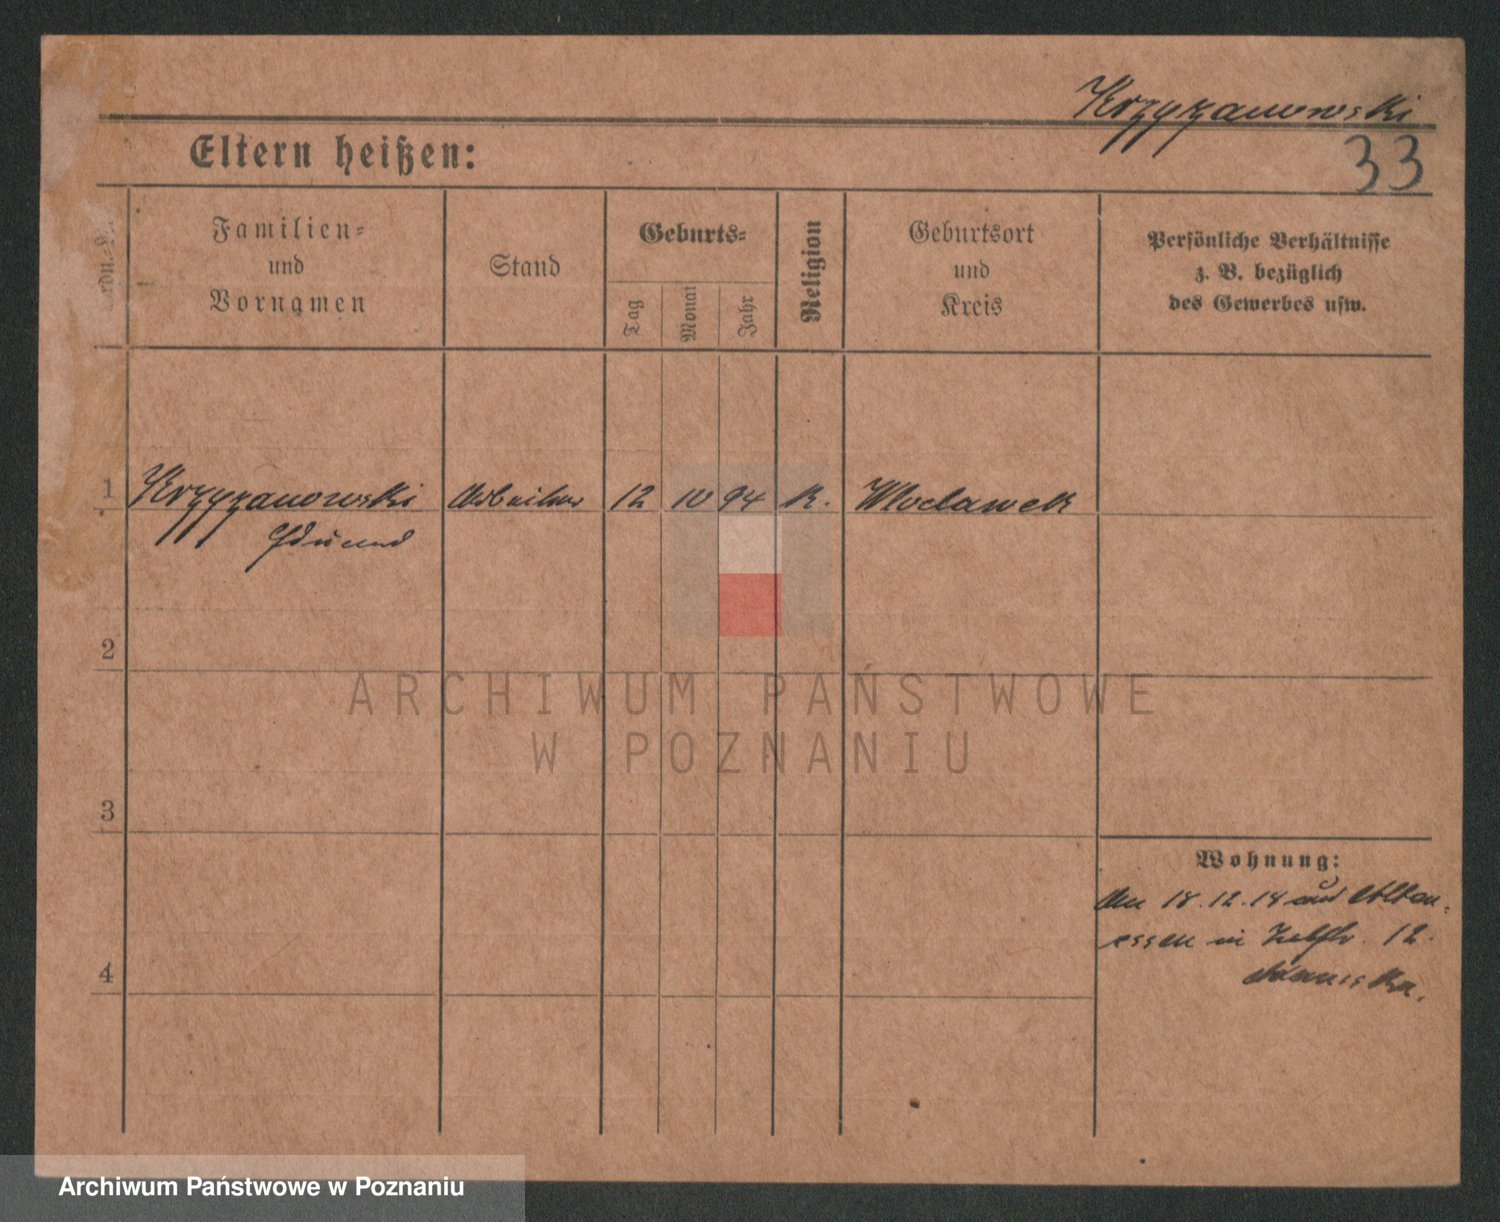 Krzyzanowski
33
Eltern heißen:
Familien- und Vornamen
Stand
Geburts-
Tag
Monat
Jahr
Religion
Geburtsort und Kreis
Persönliche Verhältnisse
z. B. bezüglich
des Gewerbes usw.
1 Krzyzanowski Arbeiter 12 10 94 K. Wloclawek
Edmund
2
ARCHIWUM PAŃSTWOWE
W POZNANIU
3
Wohnung:
18.12.14 Alten-
essen in 12.
4
Archiwum Państwowe w Poznaniu